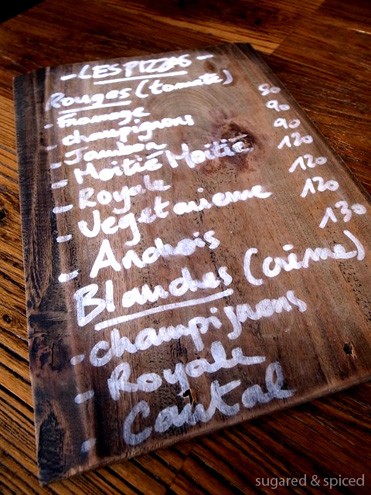 - LES PIZZAS -
Rouges (tomate)
- Fromage 80
- champignons 90
- Jambon 90
- Moitié Moitié 120
- Royale 120
- Vegetarienne 120
- Androis 130
Blanches (crème)
- champignons
- Royale
- Cantal
sugared & spiced